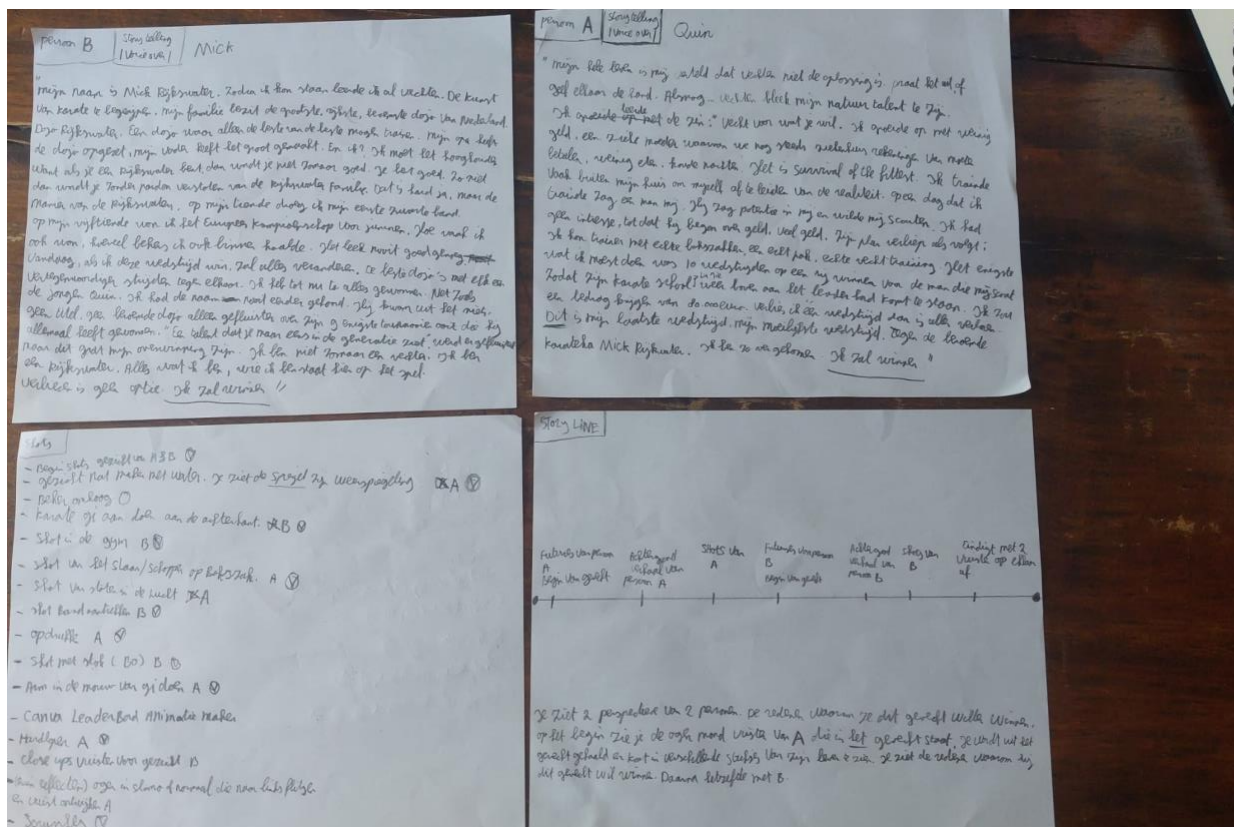 person B
Storytelling
| Voice over |
Mick
"
mijn naam is Mick Rijkswater. Zodra ik kon staan leerde ik al vechten. De kunst
van karate te begrijpen. mijn familie bezit de grootste, rijkste, beroemste dojo van Nederland
Dojo Rijkswater. Een dojo waar alleen de beste van de beste mogen trainen. mijn opa heeft
de dojo opgezet, mijn vader heeft het groot gemaakt. En ik? Ik moet het hooghouden
want als je een Rijkswater bent dan wordt je niet zomaar goed. Je bent goed. Zo niet
dan wordt je zonder pardon verstoten van de Rijkswater familie. Dat is hard ja, maar de
manier van de Rijkswaters. op mijn tiende droeg ik mijn eerste zwarte band.
op mijn vijftiende won ik het Europees kampioenschap voor junioren. Hoe vaak ik
ook won, hoeveel bekers ik ook binnen haalde. Het leek nooit goed genoeg
Vandaag, als ik deze wedstrijd win, zal alles veranderen. De beste dojo's met elk een
vertegenwoordiger strijden tegen elkaar. Ik heb tot nu toe alles gewonnen. Net zoals
de jongen Quin. Ik had de naam nooit eerder gehoord. Hij kwam uit het niets.
geen titel, geen beroemde dojo alleen gefluister over zijn 9 enigste tournooien ooit die hij
allemaal heeft gewonnen. "Een talent dat je maar eens in de generatie ziet" werd er gefluisterd
maar dit gaat mijn overwinning zijn. Ik ben niet zomaar een vechter. Ik ben
een Rijkswater. Alles wat ik ben, wie ik ben staat hier op het spel.
verliezen is geen optie. Ik zal winnen "
person A
Storytelling
| Voice over |
Quin
" mijn hele leven is mij verteld dat vechten niet de oplossing is. praat het uit of
geef elkaar de hand. Alsnog vechten bleek mijn natuur talent te zijn.
Ik leerde de zin: " vecht voor wat je wil. Ik groeide op met weinig
geld. een zieke moeder waarvan we nog steeds ziekenhuis rekeningen van moeten
betalen, weinig eten. harde nachten. Het is survival of the fittest. Ik trainde
vaak buiten mijn huis om mijzelf af te leiden van de realiteit. op een dag dat ik
trainde zag een man mij. Hij zag potentie in mij en wilde mij scouten. Ik had
geen intresse, tot dat hij begon over geld, veel geld. Zijn plan verliep als volgt:
Ik kon trainen met echte bokszakken, een echt pak. echte vecht training. Het enigste
wat ik moest doen was 10 wedstrijden op een rij winnen voor de man die mij scout
zodat zijn karate school weer boven aan het leader bord komt te staan. Ik zou
een bedrag krijgen van 20.000 euro. verlies ik één wedstrijd dan is alles verloren.
Dit is mijn laatste wedstrijd. mijn moeilijkste wedstrijd. Tegen de beroemde
karateka Mick Rijkswater. Ik ben zo ver gekomen. Ik zal winnen "
shots
- Begin shots gevecht van A & B
- gezicht nat maken met water. Je ziet de spiegel zijn weerspiegeling A
- Beker omhoog
- karate gi aan doen aan de achterkant. B
- Shot in de gym B
- shot van het slaan/schoppen op bokszak. A
- shot van stoten in de lucht A
- shot Band aantrekken B
- opdrukke A
- Shot met stok (Bo) B
- Arm in de mouw van gi doen A
- Canva LeaderBord Animatie maken
- Hardlopen A
- close ups vuisten voor gezicht B
ogen in slowmo of normaal die naar links flitsen
en vuist ontwijken A
Story LiNE
Futureds van person
A
Begin van gevecht
Achtergrond
verhaal van
person A
shots van
A
Futureds van person
B
Begin van gevecht
Achtergrond
verhaal van
person B
shots van
B
Eindigt met 2
vuisten op elkaar
af
Je ziet 2 perspectieve van 2 personen. De redenen waarom ze dit gevecht willen winnen.
op het begin zie je de ogen mond vuisten van A die in het gevecht staat. je wordt uit het
gevecht gehaald en komt in verschillende stukjes van zijn leven te zien. je ziet de redenen waarom hij
dit gevecht wil winnen. Daarna hetzelfde met B.